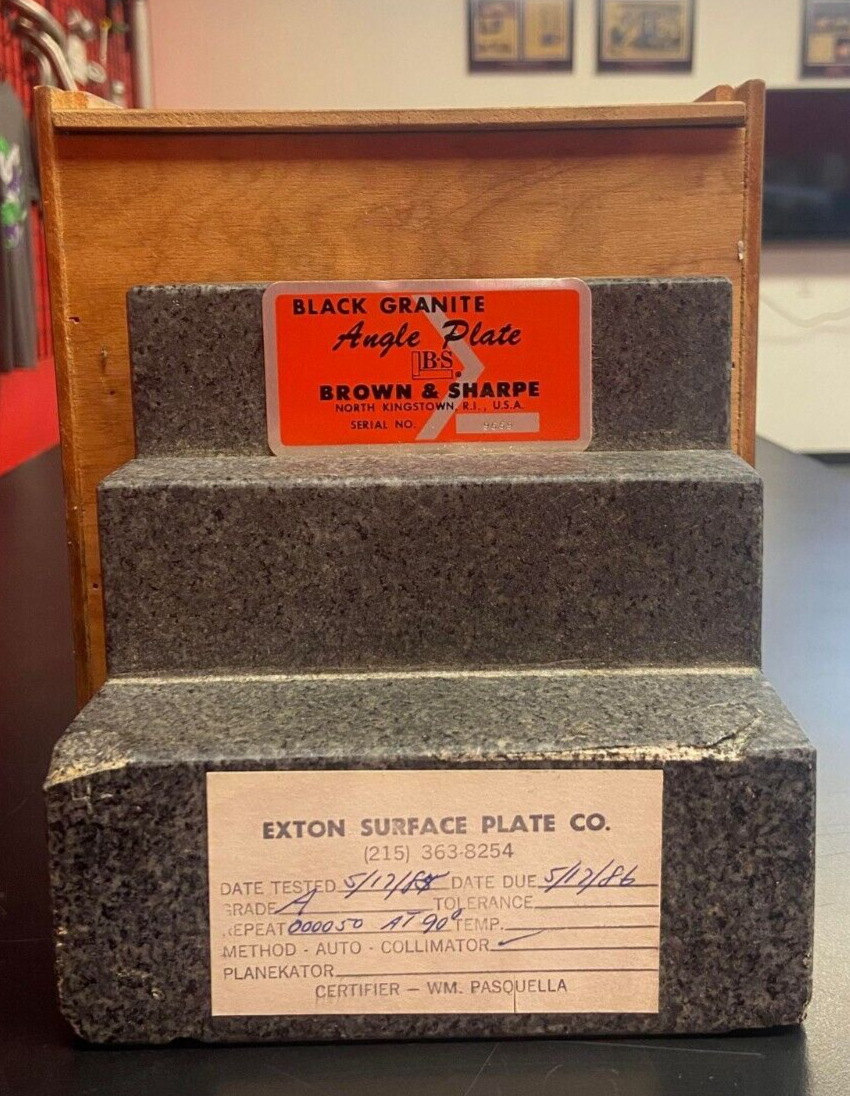 BLACK GRANITE
Angle Plate
B·S
BROWN & SHARPE
NORTH KINGSTOWN, R.I., U.S.A.
SERIAL NO.
EXTON SURFACE PLATE CO.
(215) 363-8254
DATE TESTED 5/12/85 DATE DUE 5/12/86
GRADE A TOLERANCE
REPEAT 000050 AT 90° TEMP.
METHOD - AUTO - COLLIMATOR ✓
PLANEKATOR
CERTIFIER — WM. PASQUELLA